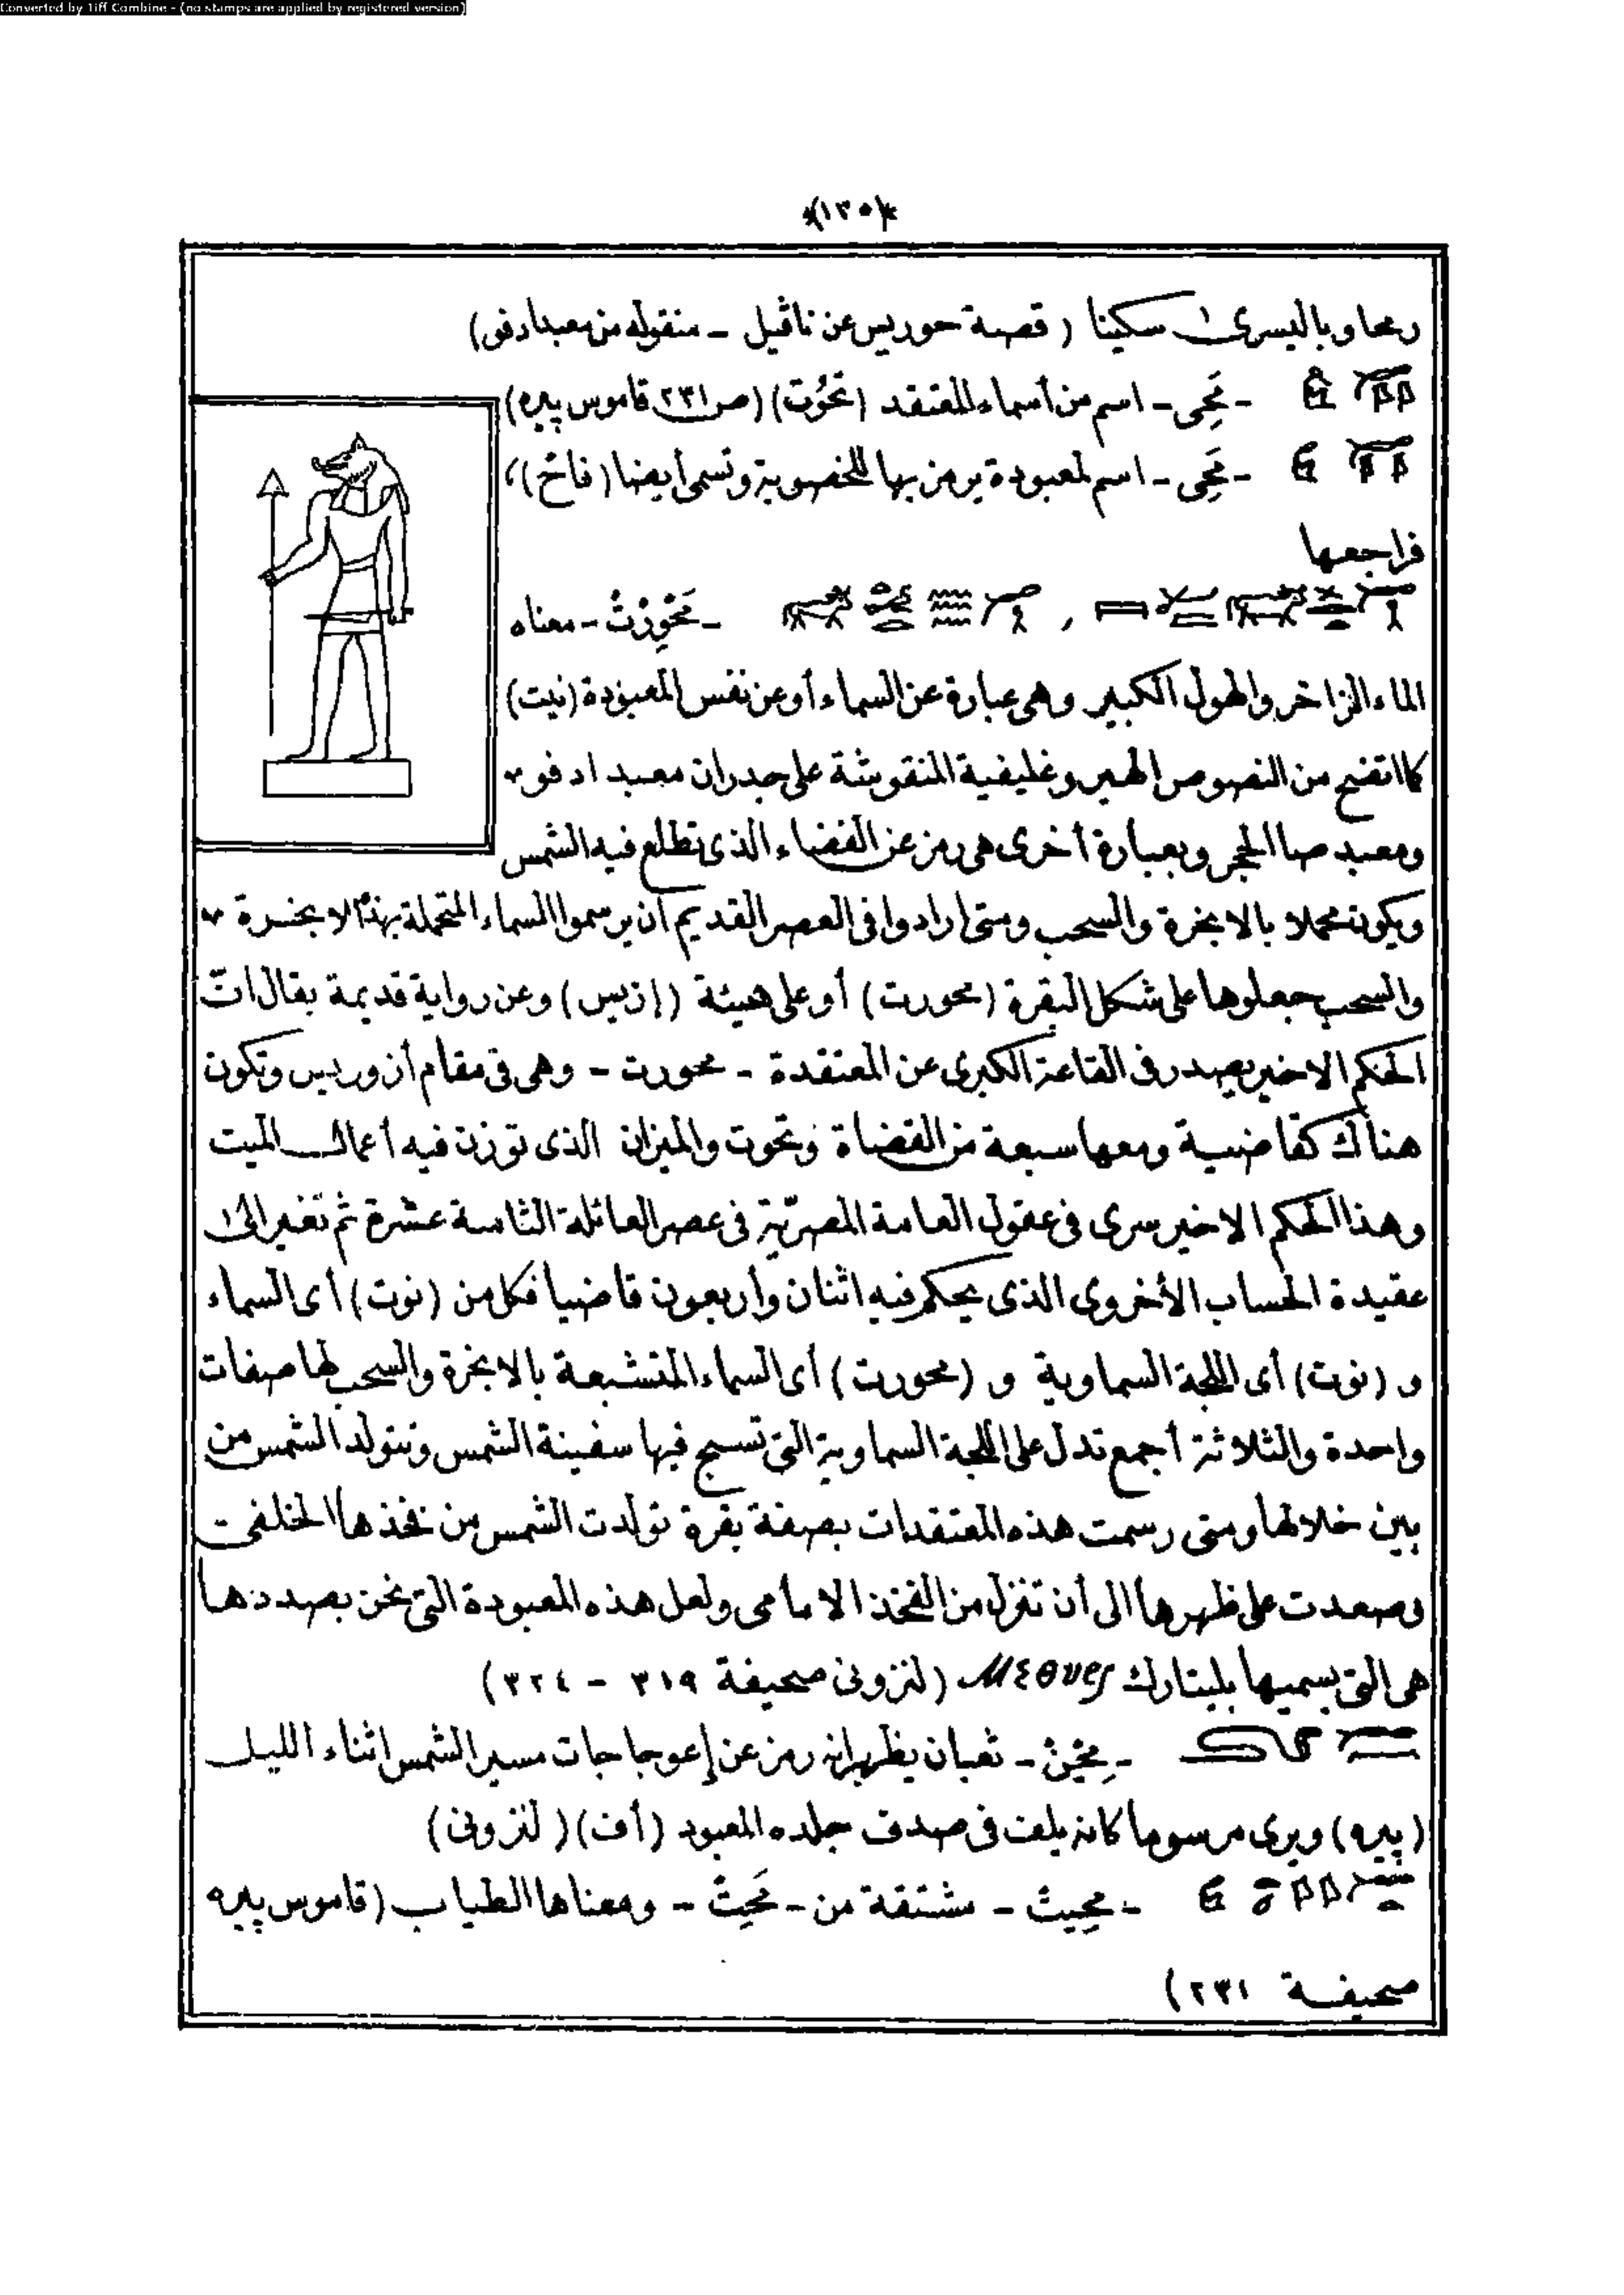 Converted by Tiff Combine - (no stamps are applied by registered version)
*(١٣٥)*
رمحا وباليسرى سكينا ( قصة حوريس عن ناڤيل - منقوله من معبد ادفو)
- مَحِى - اسم من أسماء المعتقد (تحُوت) (صـ ٢٣١ قاموس پيره)
- مَحِى - اسم لمعبودة يرمز بها للخصوبة وتسمى أيضا ( فاخ)
فراجعها
- مَحْوِرْتْ - معناه
الماء الزاخر والهول الكبير وهى عبارة عن السماء أو عن نفس المعبودة (نيت)
كما اتضح من النصوص الهيروغليفية المنقوشة على جدران معبد ادفو
ومعبد صا الحجر وبعبارة أخرى هى رمز عن الفضاء الذى تطلع فيه الشمس
ويكون محملا بالابخرة والسحب ومتى ارادوا فى العصر القديم أن يرسموا السماء المتحملة بهذه الابخرة
والسحب جعلوها على شكل البقرة (محورت) أو على هيئة (إزيس) وعن رواية قديمة يقال انّ
الحكم الاخير يصدر فى القاعة الكبرى عن المعتقدة - محورت - وهى فى مقام أزوريس وتكون
هناك كقاضية ومعها سبعة من القضاة وتحوت والميزان الذى توزن فيه أعمال الميت
وهذا الحكم الاخير سرى فى عقول العامة المصريّة فى عصر العائلة الثامنة عشرة ثم تغير الى
عقيدة الحساب الأخروى الذى يحكم فيه اثنان وأربعون قاضيا فكل من (نوت) أى السماء
و (نوت) أى اللجة السماوية و (محورت) أى السماء المتشبعة بالابخرة والسحب لها صفات
واحدة والثلاثة أجمع تدل على اللجة السماوية التى تسبح فيها سفينة الشمس وتتولد الشمس من
بين خلالها ومتى رسمت هذه المعتقدات بصفة بقرة تولدت الشمس من فخذها الخلفى
وصعدت على ظهرها الى أن تنزل من الفخذ الامامى ولعل هذه المعبودة التى نحن بصددها
هى التى يسميها بليتارك Μεθυες (لنزونى صحيفة ٣١٩ - ٣٢٤)
- مِحِنْ - ثعبان يظهر انه رمز عن إعوجاجات مسير الشمس اثناء الليل
(پيره) ويرى مرسوما كانه يلف فى صدف جلده المعبود (أف) ( لنزونى)
- محِيتْ - مشتقة من - مَحِتْ - ومعناها الطياب (قاموس پيره
صحيفة ٢٣١)